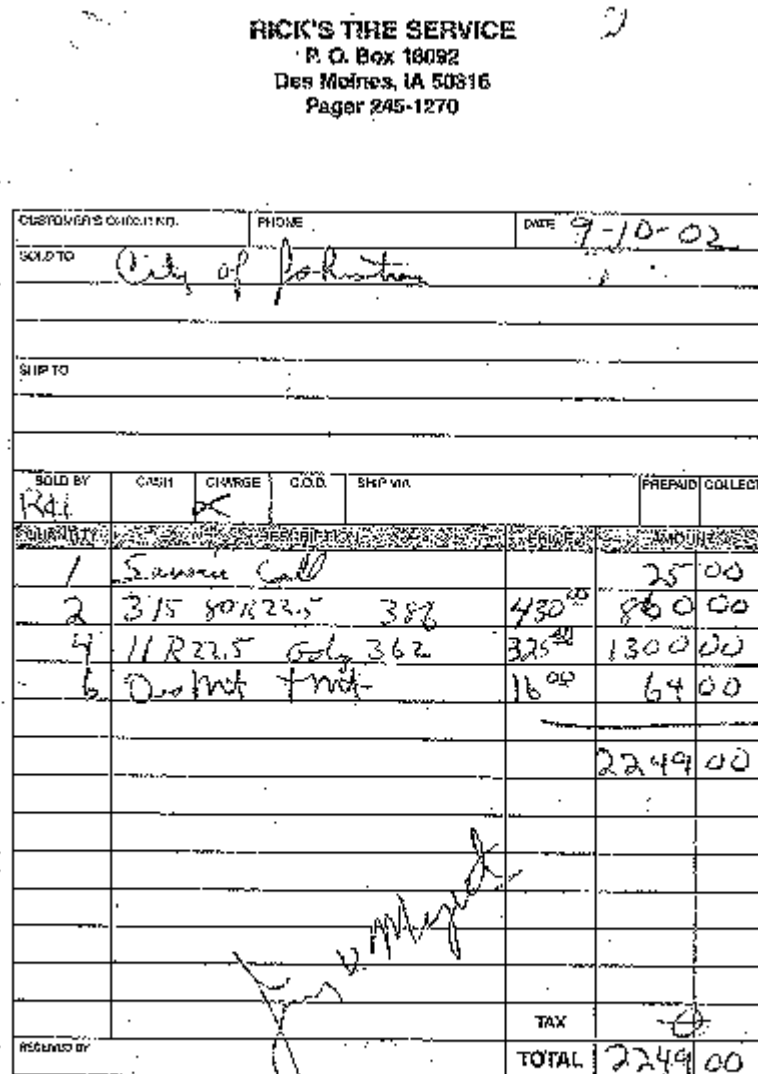 RICK'S TIRE SERVICE
P. O. Box 16092
Des Moines, IA 50316
Pager 245-1270
CUSTOMER'S ORDER NO. PHONE DATE 9-10-02
SOLD TO City of Johnston
SHIP TO
SOLD BY CASH CHARGE C.O.D. SHIP VIA PREPAID COLLECT
QUANTITY DESCRIPTION PRICE AMOUNT
1 Service Call 25 00
2 315 80R22.5 386 430 00 860 00
4 11R22.5 362 325 00 1300 00
6 Dismt + mt 16 00 64 00
2249 00
TAX 0
RECEIVED BY TOTAL 2249 00